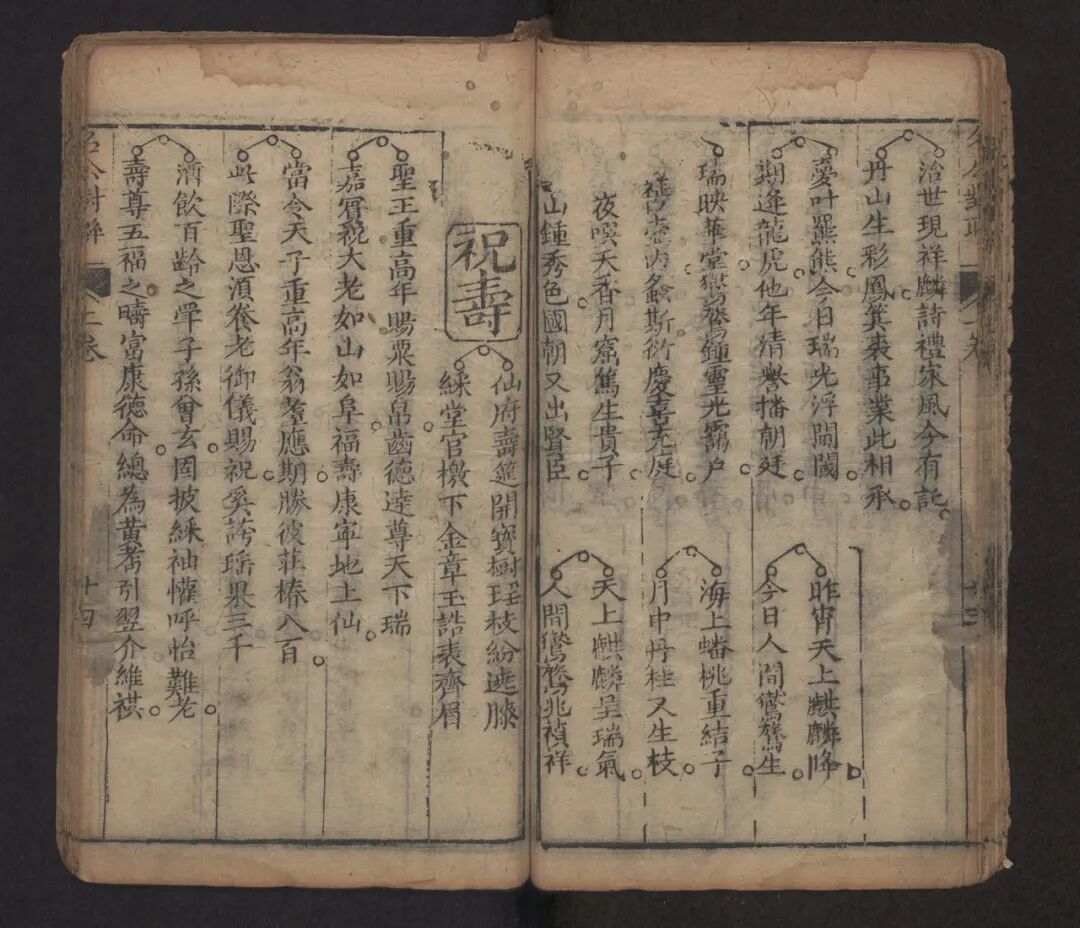 治世現祥麟詩禮家風今有託
丹山生彩鳳箕裘事業此相承
夢叶羆熊今日瑞光浮閥閱
期逢龍虎他年清譽播朝廷
瑞映華堂鸑鷟鍾靈光靄戶
螽斯衍慶喜充庭
夜喚天香月窟篤生貴子
山鍾秀色國朝又出賢臣
昨宵天上麒麟降
今日人間鸑鷟生
海上蟠桃重結子
月中丹桂又生枝
天上麒麟呈瑞氣
人間鸑鷟兆禎祥
祝壽
仙府壽筵開寶樹瑶枝紛遶膝
綵堂官檄下金章玉誥表齊眉
聖王重高年賜粟賜帛齒德達尊天下瑞
嘉賓稅大老如山如阜福壽康寧地上仙
當今天子重高年翁耋應期勝彼莊椿八百
此際聖恩須養老御儀賜祝奚誇瑶果三千
酒飲百齡之斝子孫曾玄固披綵袖懽呼怡難老
壽尊五福之疇富康德命總為黃耇引翌介維祺
上卷
十四